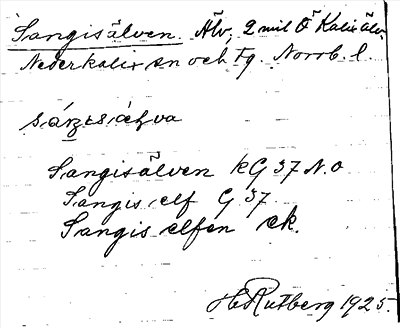 Sangisälven. Älv, 2 mil Ö Kalixälv.
Nederkalix sn och tg. Norrb. l.
Sangisälven kG 37 N.O
Sangis elf G 37
Sangis elfen ek.
H Rutberg 1925.